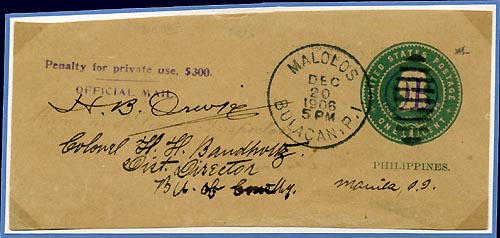 Penalty for private use, $300.
OFFICIAL MAIL
H. B.
MALOLOS
DEC
20
1906
5 PM
BULACAN, P.I.
UNITED STATES POSTAGE
ONE CENT
PHILIPPINES.
Colonel H. H. Bandholtz.
Dist. Director
Manila P.I.